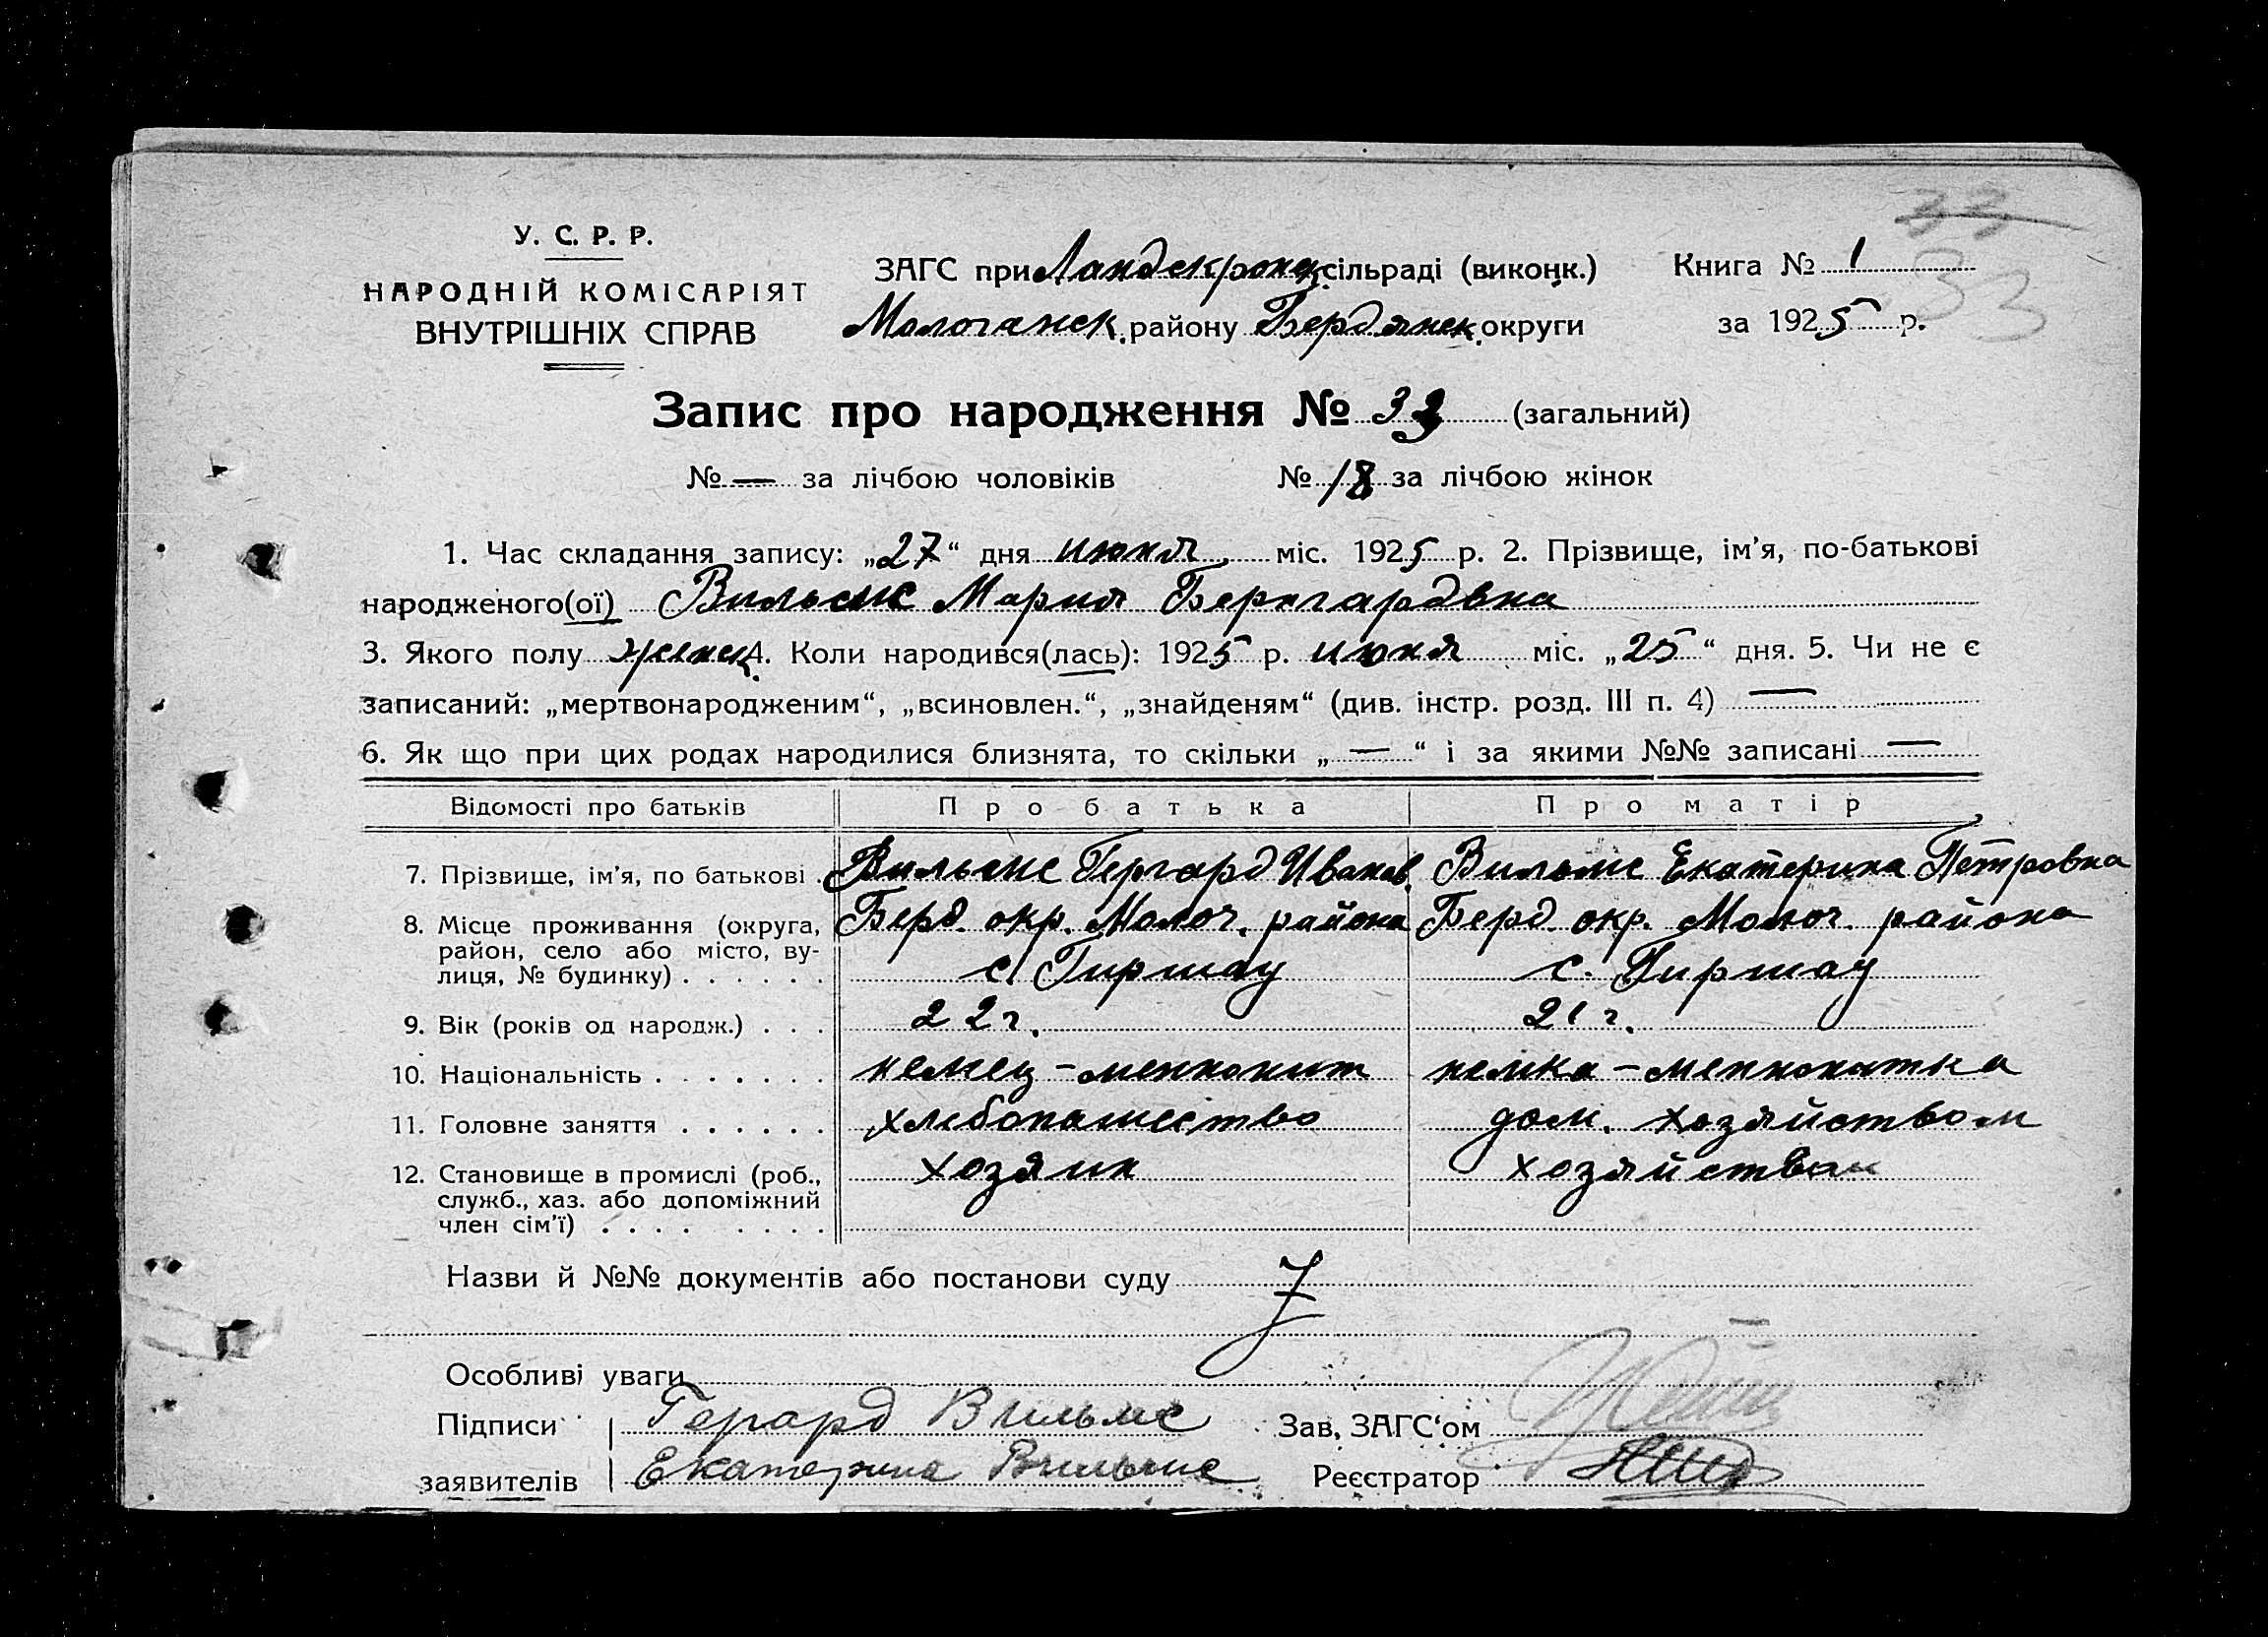 33
У. С. Р. Р.
НАРОДНІЙ КОМІСАРІЯТ
ВНУТРІШНІХ СПРАВ
ЗАГС при Ландскронск. сільраді (виконк.) Книга № 1
Молочанск. району Бердянск. округи за 1925 р.
33
Запис про народження № 33 (загальний)
№ — за лічбою чоловіків № 18 за лічбою жінок
1. Час складання запису: „27“ дня июня міс. 1925 р. 2. Прізвище, ім'я, по-батькові
народженого(ої) Вильмс Мария Гергардовна
3. Якого полу женщ. 4. Коли народився(лась): 1925 р. июня міс. „25“ дня. 5. Чи не є
записаний: „мертвонародженим“, „всиновлен.“, „знайденям“ (див. інстр. розд. III п. 4) —
6. Як що при цих родах народилися близнята, то скільки „ — “ і за якими №№ записані —
Відомості про батьків Про батька Про матір
7. Прізвище, ім'я, по батькові . Вильмс Гергард Иванов. Вильмс Екатерина Петровна
8. Місце проживання (округа, Берд. окр. Молоч. района Берд. окр. Молоч. района
район, село або місто, ву-
лиця, № будинку) . . . . . . с. Гиршау с. Гиршау
9. Вік (років од народж.) . . . 22 г. 21 г.
10. Національність . . . . . . . немец - меннонит немка - меннонитка
11. Головне заняття . . . . . . хлебопашество дом. хозяйством
12. Становище в промислі (роб., хозяин хозяйствам
служб., хаз. або допоміжний
член сім'ї) . . . . . . . .
Назви й №№ документів або постанови суду
Особливі уваги
Підписи Герард Вильмс Зав, ЗАГС'ом
заявителів Екатерина Вильмс Реєстратор